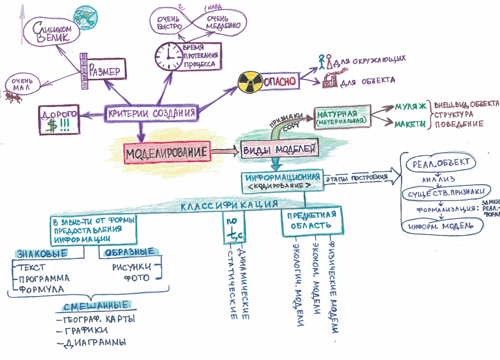 СЛИШКОМ
ВЕЛИК
ОЧЕНЬ
МАЛ
РАЗМЕР
ОЧЕНЬ
БЫСТРО
ОЧЕНЬ
МЕДЛЕННО
ВРЕМЯ
ПРОТЕКАНИЯ
ПРОЦЕССА
ОПАСНО
ДЛЯ ОКРУЖАЮЩИХ
ДЛЯ ОБЪЕКТА
ДОРОГО
$!!!
КРИТЕРИИ СОЗДАНИЯ
МОДЕЛИРОВАНИЕ
ВИДЫ МОДЕЛЕЙ
ПРИЗНАКИ
НАТУРНАЯ
(МАТЕРИАЛЬНАЯ)
МУЛЯЖ
МАКЕТЫ
ВНЕШ.ВИД ОБЪЕКТА
СТРУКТУРА
ПОВЕДЕНИЕ
ИНФОРМАЦИОННАЯ
<КОДИРОВАНИЕ>
ЭТАПЫ ПОСТРОЕНИЯ
РЕАЛ.ОБЪЕКТ
АНАЛИЗ
СУЩЕСТВ.ПРИЗНАКИ
ФОРМАЛИЗАЦИЯ:
ИНФОРМ.МОДЕЛЬ
КЛАССИФИКАЦИЯ
В ЗАВИС-ТИ ОТ ФОРМЫ
ПРЕДОСТАВЛЕНИЯ
ИНФОРМАЦИИ
ПО
t,c
ПРЕДМЕТНАЯ
ОБЛАСТЬ
ЗНАКОВЫЕ
ТЕКСТ
ПРОГРАММА
ФОРМУЛА
ОБРАЗНЫЕ
РИСУНКИ
ФОТО
СМЕШАННЫЕ
-ГЕОГРАФ. КАРТЫ
-ГРАФИКИ
-ДИАГРАММЫ
-СТАТИЧЕСКИЕ
-ДИНАМИЧЕСКИЕ
-ЭКОЛОГИЧ. МОДЕЛИ
-ЭКОНОМ. МОДЕЛИ
-ФИЗИЧЕСКИЕ МОДЕЛИ